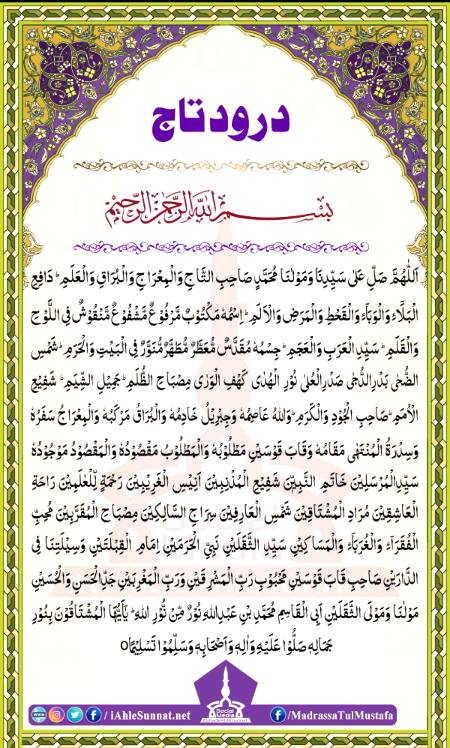 درود تاج
بسم اللہ الرحمن الرحیم
اَللّٰهُمَّ صَلِّ عَلٰی سَیِّدِنَا وَمَوْلٰنَا مُحَمَّدٍ صَاحِبِ التَّاجِ وَالْمِعْرَاجِ وَالْبُرَاقِ وَالْعَلَمِ ؕ دَافِعِ
الْبَلَآءِ وَالْوَبَآءِ وَالْقَحْطِ وَالْمَرَضِ وَالْاَلَمِ ؕ اِسْمُهٗ مَكْتُوْبٌ مَّرْفُوْعٌ مَّشْفُوْعٌ مَّنْقُوْشٌ فِی اللَّوْحِ
وَالْقَلَمِ ؕ سَیِّدِ الْعَرَبِ وَالْعَجَمِ ؕ جِسْمُهٗ مُقَدَّسٌ مُّعَطَّرٌ مُّطَهَّرٌ مُّنَوَّرٌ فِی الْبَیْتِ وَالْحَرَمِ ؕ شَمْسِ
الضُّحٰی بَدْرِ الدُّجٰی صَدْرِ الْعُلٰی نُوْرِ الْهُدٰی كَهْفِ الْوَرٰی مِصْبَاحِ الظُّلَمِ ؕ جَمِیْلِ الشِّیَمِ ؕ شَفِیْعِ
الْاُمَمِ ؕ صَاحِبِ الْجُوْدِ وَالْكَرَمِ ؕ وَاللّٰهُ عَاصِمُهٗ وَجِبْرِیْلُ خَادِمُهٗ وَالْبُرَاقُ مَرْكَبُهٗ وَالْمِعْرَاجُ سَفَرُهٗ
وَسِدْرَةُ الْمُنْتَهٰی مَقَامُهٗ وَقَابَ قَوْسَیْنِ مَطْلُوْبُهٗ وَالْمَطْلُوْبُ مَقْصُوْدُهٗ وَالْمَقْصُوْدُ مَوْجُوْدُهٗ
سَیِّدِ الْمُرْسَلِیْنَ خَاتَمِ النَّبِیّٖنَ شَفِیْعِ الْمُذْنِبِیْنَ اَنِیْسِ الْغَرِیْبِیْنَ رَحْمَةٍ لِّلْعٰلَمِیْنَ رَاحَةِ
الْعَاشِقِیْنَ مُرَادِ الْمُشْتَاقِیْنَ شَمْسِ الْعَارِفِیْنَ سِرَاجِ السَّالِكِیْنَ مِصْبَاحِ الْمُقَرَّبِیْنَ مُحِبِّ
الْفُقَرَآءِ وَالْغُرَبَآءِ وَالْمَسَاكِیْنَ سَیِّدِ الثَّقَلَیْنِ نَبِیِّ الْحَرَمَیْنِ اِمَامِ الْقِبْلَتَیْنِ وَسِیْلَتِنَا فِی
الدَّارَیْنِ صَاحِبِ قَابَ قَوْسَیْنِ مَحْبُوْبِ رَبِّ الْمَشْرِقَیْنِ وَرَبِّ الْمَغْرِبَیْنِ جَدِّ الْحَسَنِ وَالْحُسَیْنِ
مَوْلٰنَا وَمَوْلَی الثَّقَلَیْنِ اَبِی الْقَاسِمِ مُحَمَّدِ بْنِ عَبْدِ اللّٰهِ نُوْرٌ مِّنْ نُّوْرِ اللّٰهِ ؕ یٰۤاَیُّهَا الْمُشْتَاقُوْنَ بِنُوْرِ
جَمَالِهٖ صَلُّوْا عَلَیْهِ وَاٰلِهٖ وَاَصْحَابِهٖ وَسَلِّمُوْا تَسْلِیْمًا ○
/iAhleSunnat.net
Social Media
/MadrassaTulMustafa